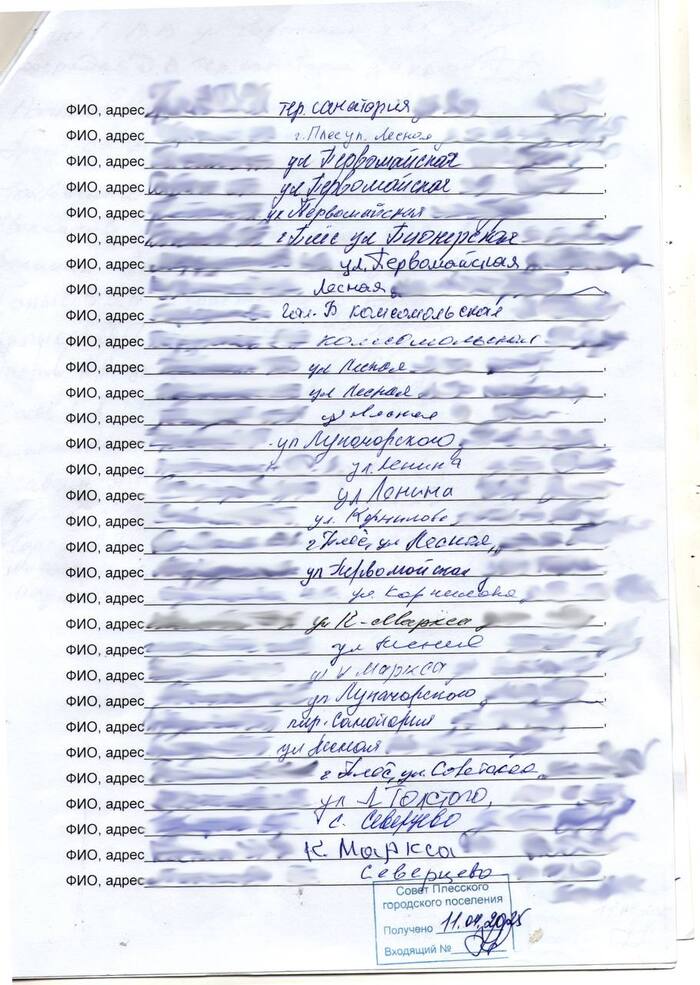 ФИО, адрес тер. санатория,
ФИО, адрес г. Плес ул. Лесная
ФИО, адрес ул Первомайская
ФИО, адрес ул Первомайская
ФИО, адрес ул Первомайская
ФИО, адрес г Плёс ул Пионерская
ФИО, адрес ул. Первомайская
ФИО, адрес Лесная
ФИО, адрес комсомольская
ФИО, адрес комсомольская
ФИО, адрес ул Лесная
ФИО, адрес ул Лесная
ФИО, адрес ул Лесная
ФИО, адрес ул Луначарского
ФИО, адрес ул Ленина
ФИО, адрес ул Ленина
ФИО, адрес ул. Корнилова
ФИО, адрес г Плёс, ул Лесная,
ФИО, адрес ул Первомайская
ФИО, адрес ул. Корнилова
ФИО, адрес ул К-Маркса
ФИО, адрес ул
ФИО, адрес К Маркса
ФИО, адрес ул Луначарского
ФИО, адрес тер. Санатория
ФИО, адрес ул Лесная
ФИО, адрес г Плёс, ул. Советская
ФИО, адрес ул Л Толстого,
ФИО, адрес с. Северцево
ФИО, адрес К. Маркса
ФИО, адрес Северцево
Совет Плесского
городского поселения
Получено 11.04.2025
Входящий №